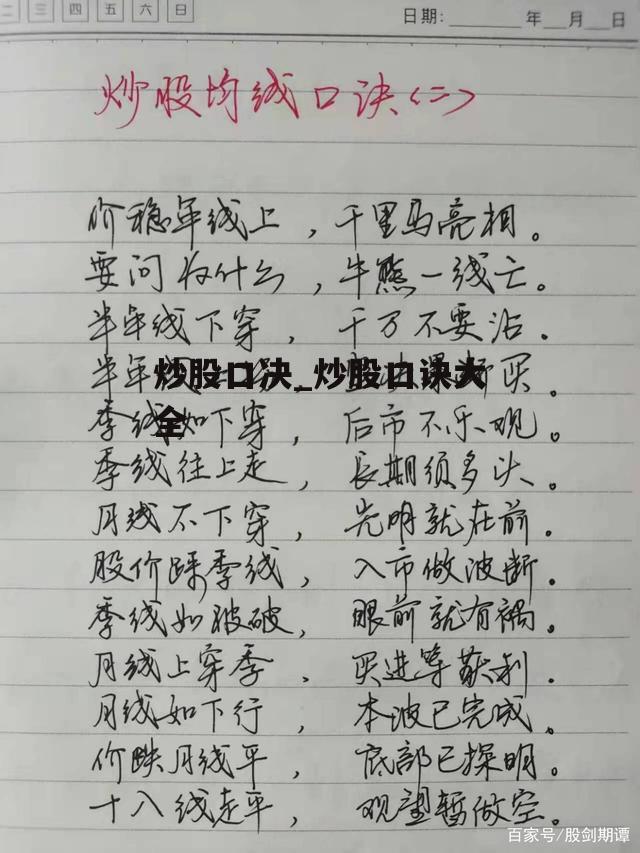 二 三 四 五 六 日
日期: 年 月 日
炒股均线口诀(二)
价稳年线上，千里马亮相。
要问为什么，牛熊一线亡。
半年线下穿，千万不要沾.
半年 买.
炒股口决_炒股口诀大
全
季线如下穿，后市不乐观。
季线往上走，长期须多头.
月线不下穿，光明就在前.
股价踩季线，入市做波断.
季线如被破，眼前就有祸.
月线上穿季，买进等获利.
月线如下行，本波已完成.
价跌月线平，底部已探明.
十八线走平，观望暂做空.
百家号/股剑期谭